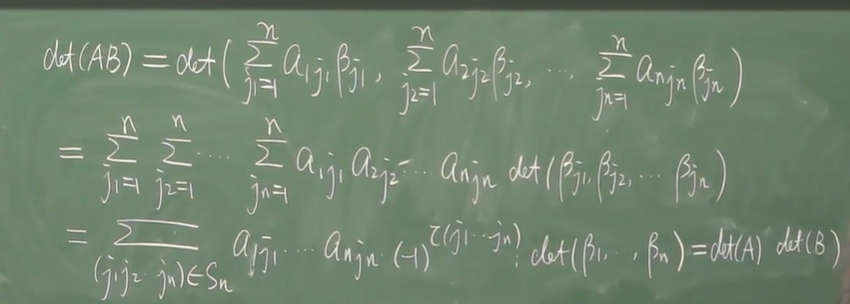 det(AB) = det( ∑_{j₁=1}^{n} a_{1j₁} β_{j₁}, ∑_{j₂=1}^{n} a_{2j₂} β_{j₂}, ..., ∑_{jₙ=1}^{n} a_{njₙ} β_{jₙ} )
= ∑_{j₁=1}^{n} ∑_{j₂=1}^{n} ... ∑_{jₙ=1}^{n} a_{1j₁} a_{2j₂} ... a_{njₙ} det(β_{j₁}, β_{j₂}, ... β_{jₙ})
= ∑_{(j₁j₂...jₙ)∈Sₙ} a_{1j₁} ... a_{njₙ} · (-1)^{τ(j₁...jₙ)} · det(β₁, ..., βₙ) = det(A) det(B)